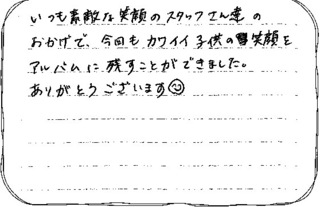 いつも素敵な笑顔のスタッフさん達の
おかげで、今回もカワイイ子供の笑顔を
アルバムに残すことができました。
ありがとうございます☺